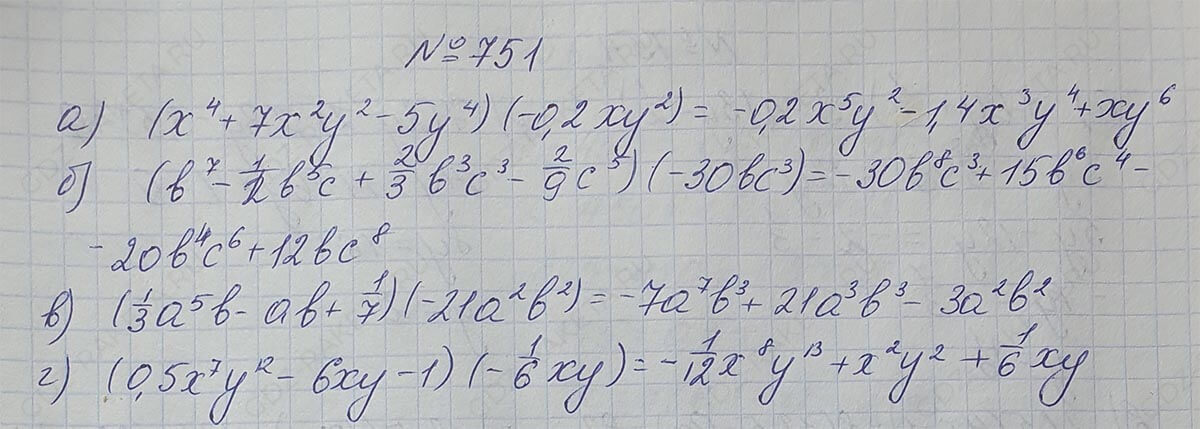 №751
а) (x⁴ + 7x²y² - 5y⁴)(-0,2xy²) = -0,2x⁵y² - 1,4x³y⁴ + xy⁶
б) (b⁷ - 1/2 b⁵c + 2/3 b³c³ - 2/9 c⁵)(-30bc³) = -30b⁸c³ + 15b⁶c⁴ -
- 20b⁴c⁶ + 12bc⁸
в) (1/3 a⁵b - ab + 1/7)(-21a²b²) = -7a⁷b³ + 21a³b³ - 3a²b²
г) (0,5x⁷y¹² - 6xy - 1)(-1/6 xy) = -1/12 x⁸y¹³ + x²y² + 1/6 xy